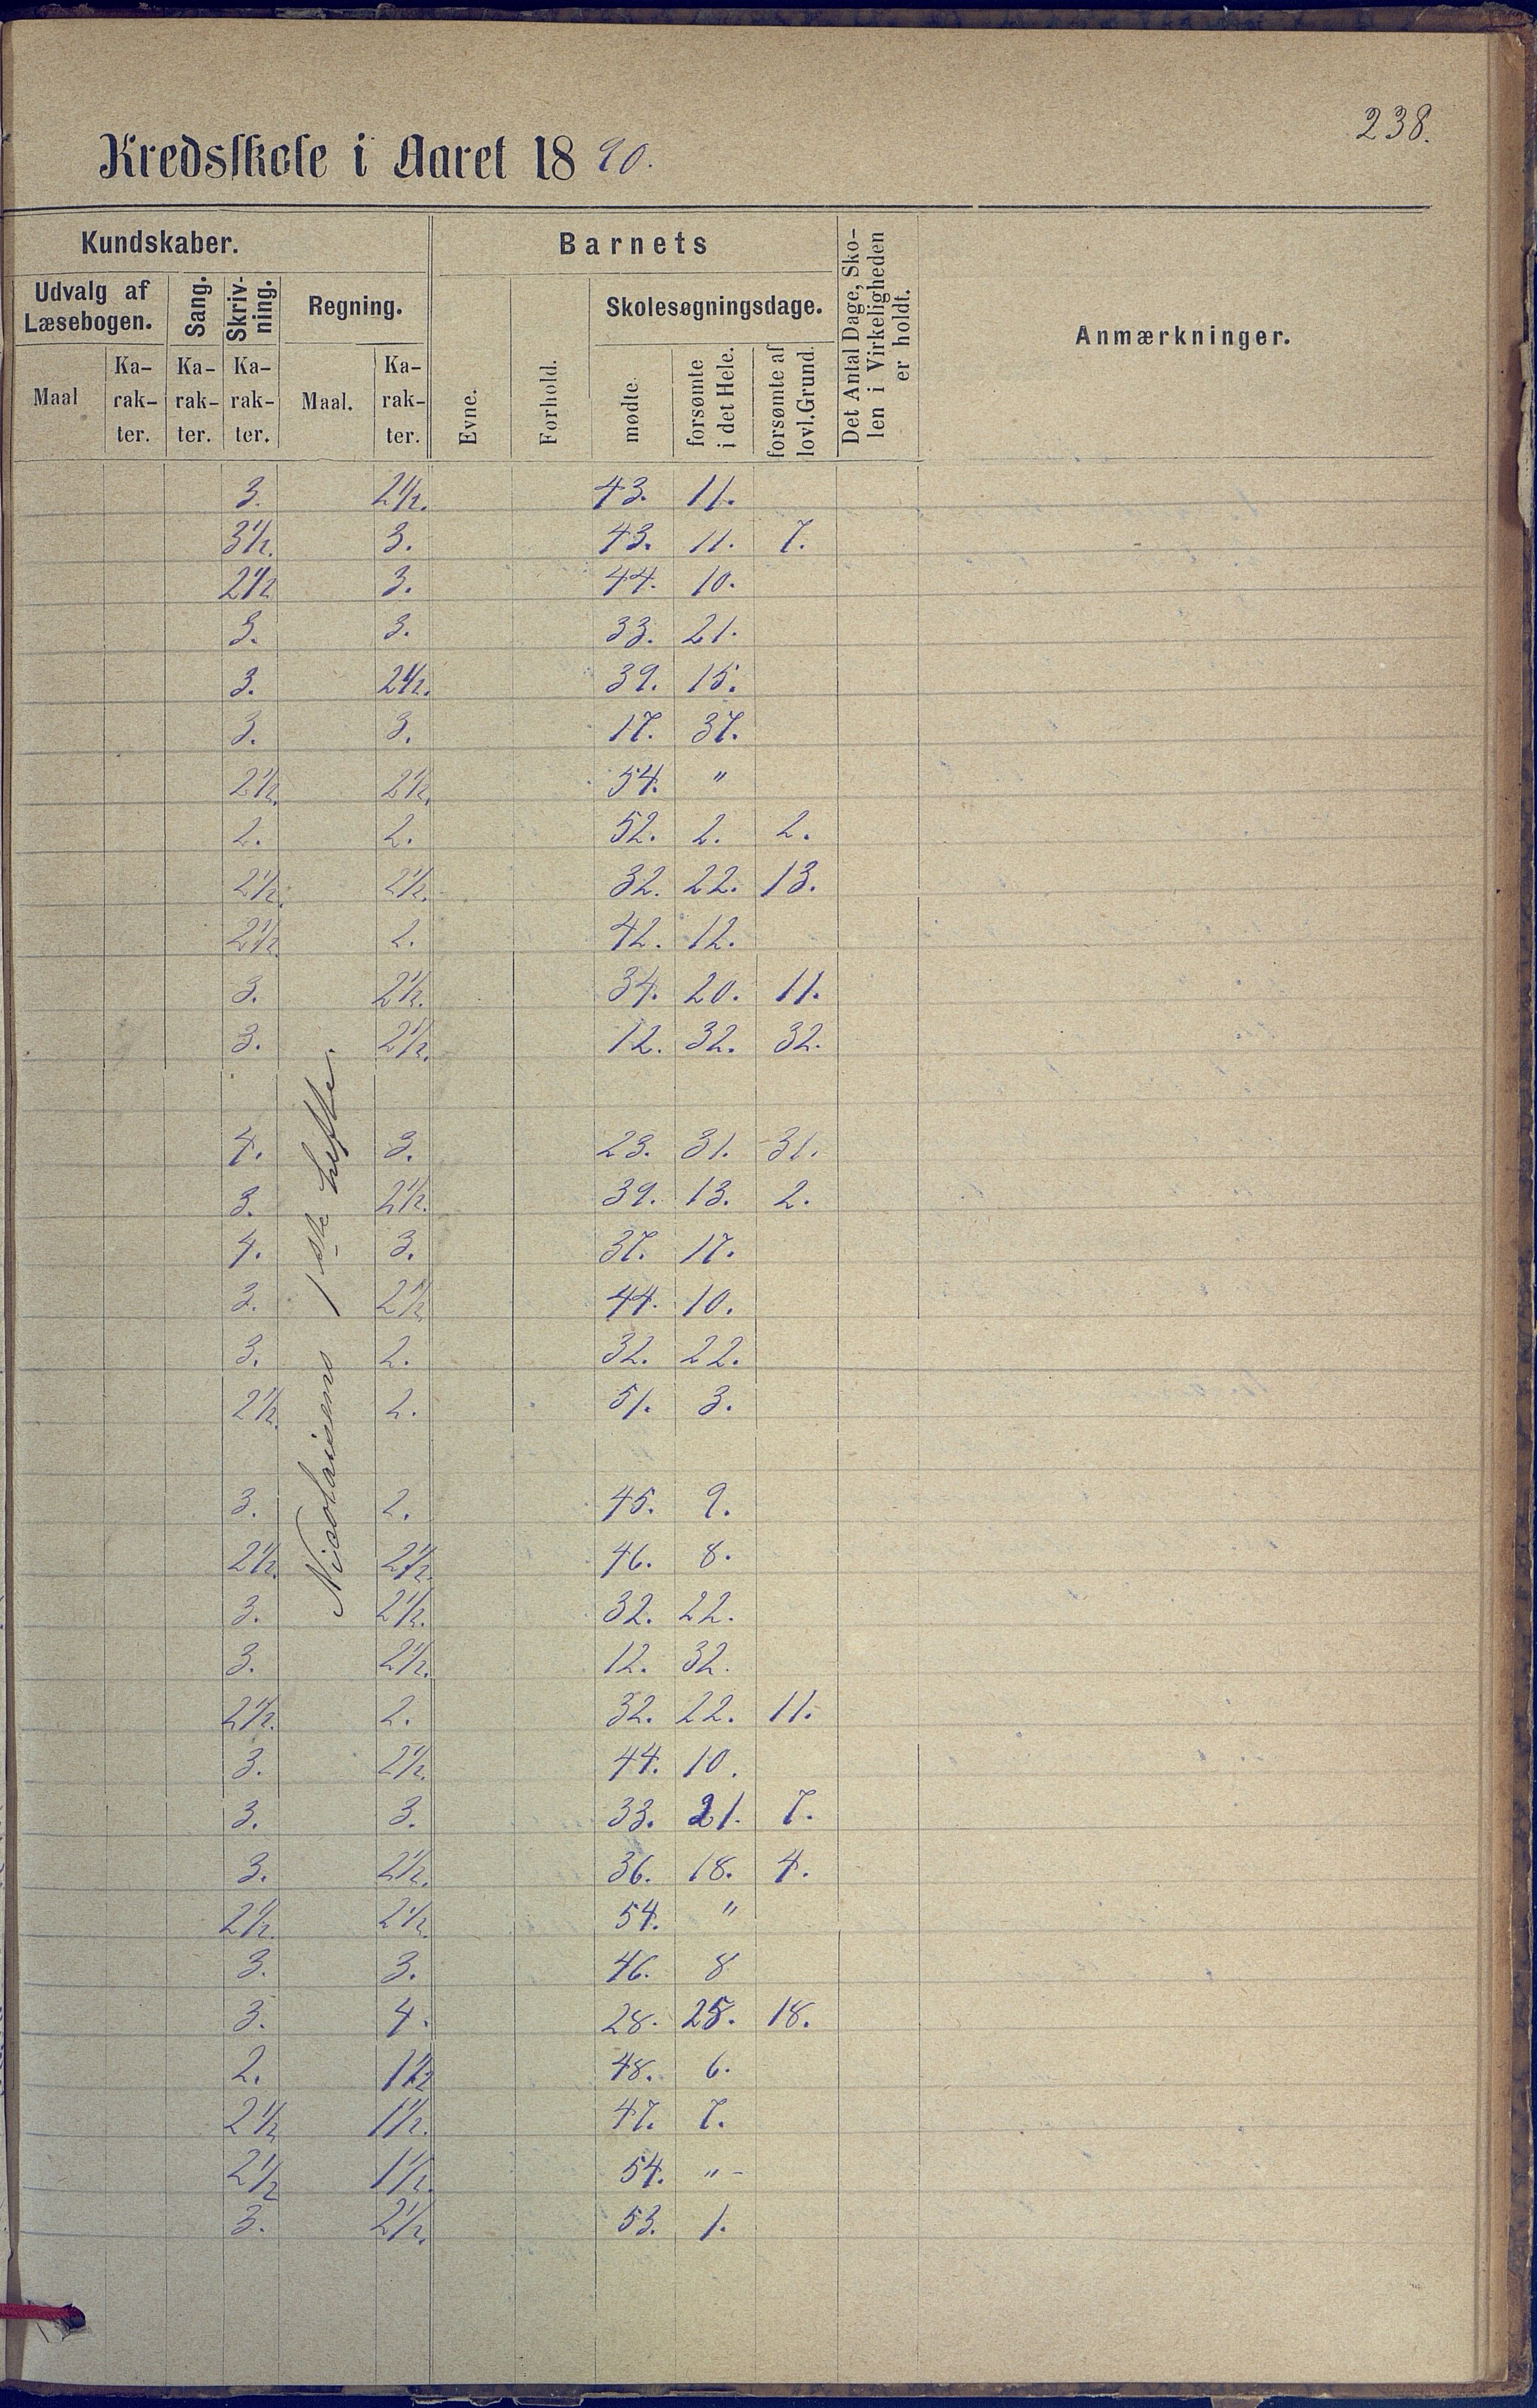 238.
Kredsskole i Aaret 1890.
Kundskaber.
Barnets
Det Antal Dage, Sko-
len i Virkeligheden
er holdt.
Anmærkninger.
Udvalg af
Læsebogen.
Sang.
Skriv-
ning.
Regning.
Evne.
Forhold.
Skolesøgningsdage.
Maal
Ka-
rak-
ter.
Ka-
rak-
ter.
Ka-
rak-
ter.
Maal.
Ka-
rak-
ter.
mødte.
forsømte
i det Hele.
forsømte af
lovl. Grund.
3. 2½. 43. 11.
3½. 3. 43. 11. 7.
2½ 3. 44. 10.
3. 3. 33. 21.
3. 2½. 39. 15.
3. 3. 17. 37.
2½. 2½. 54. "
2. 2. 52. 2. 2.
2½. 2½. 32. 22. 13.
2½ 2. 42. 12.
3. 2½. 34. 20. 11.
3. 2½. 12. 32. 32.
Nicolaisens 1ste Hefte.
4. 3. 23. 31. 31.
3. 2½. 39. 13. 2.
4. 3. 37. 17.
3. 2½ 44. 10.
3. 2. 32. 22.
2½. 2. 51. 3.
3. 2. 45. 9.
2½. 2½. 46. 8.
3. 2½. 32. 22.
3. 2½. 12. 32.
2½. 2. 32. 22. 11.
3. 2½. 44. 10.
3. 3. 33. 21. 7.
3. 2½. 36. 18. 4.
2½. 2½. 54. "
3. 3. 46. 8
3. 4. 28. 25. 18.
2. 1½ 48. 6.
2½ 1½. 47. 7.
2½ 1½. 54. " -
3. 2½. 53. 1.